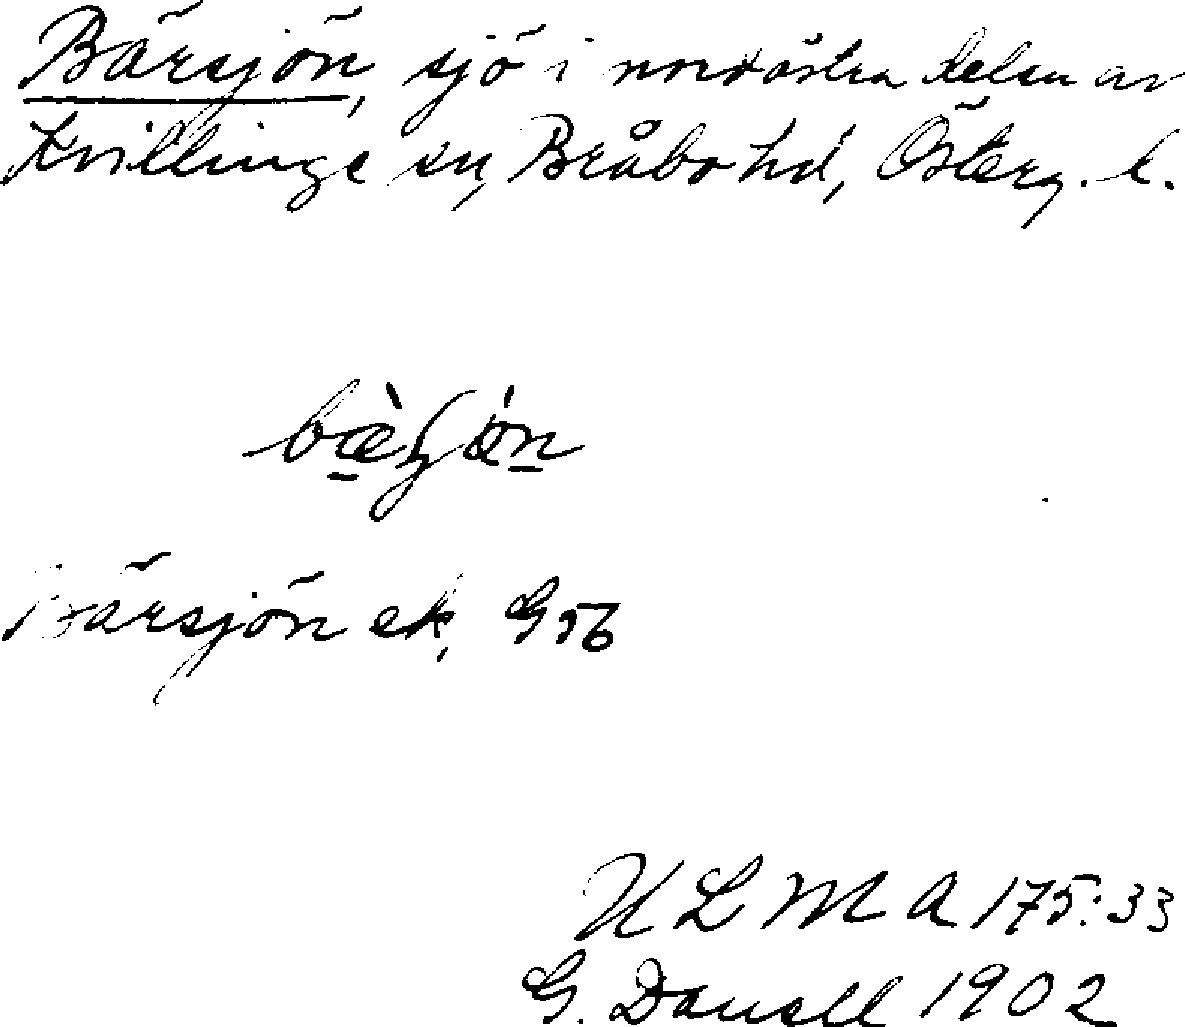 Bärsjön, sjö i nordöstra delen av
Kvillinge sn, Bråbo hd, Österg. l.
Bärsjön ek, G 56
ULMA 175:33
G. Danell 1902